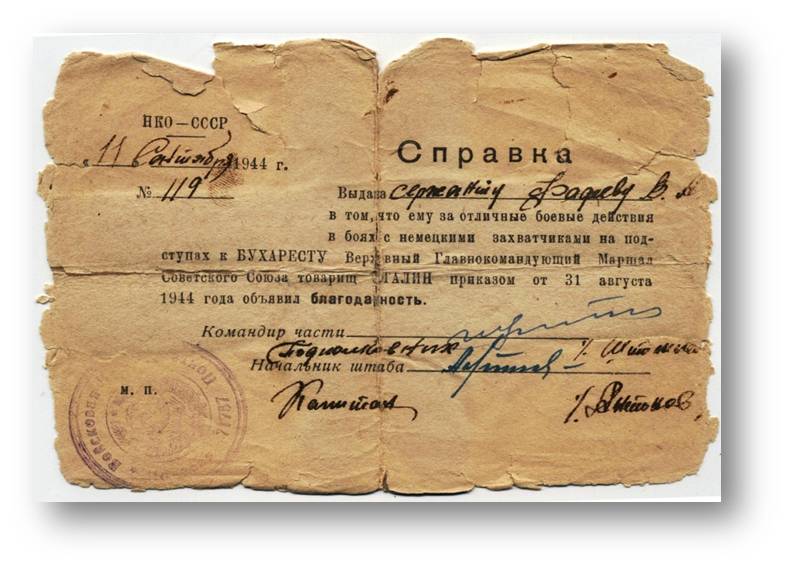 НКО—СССР
„ 11 Сентября 1944 г.
№ 119
Справка
Выдана сержанту Фадееву В.
в том, что ему за отличные боевые действия
в боях с немецкими захватчиками на под-
ступах к БУХАРЕСТУ Верховный Главнокомандующий Маршал
Советского Союза товарищ СТАЛИН приказом от 31 августа
1944 года объявил благодарность.
Командир части
Подполковник
Начальник штаба
м. п.
Капитан
Войсковая